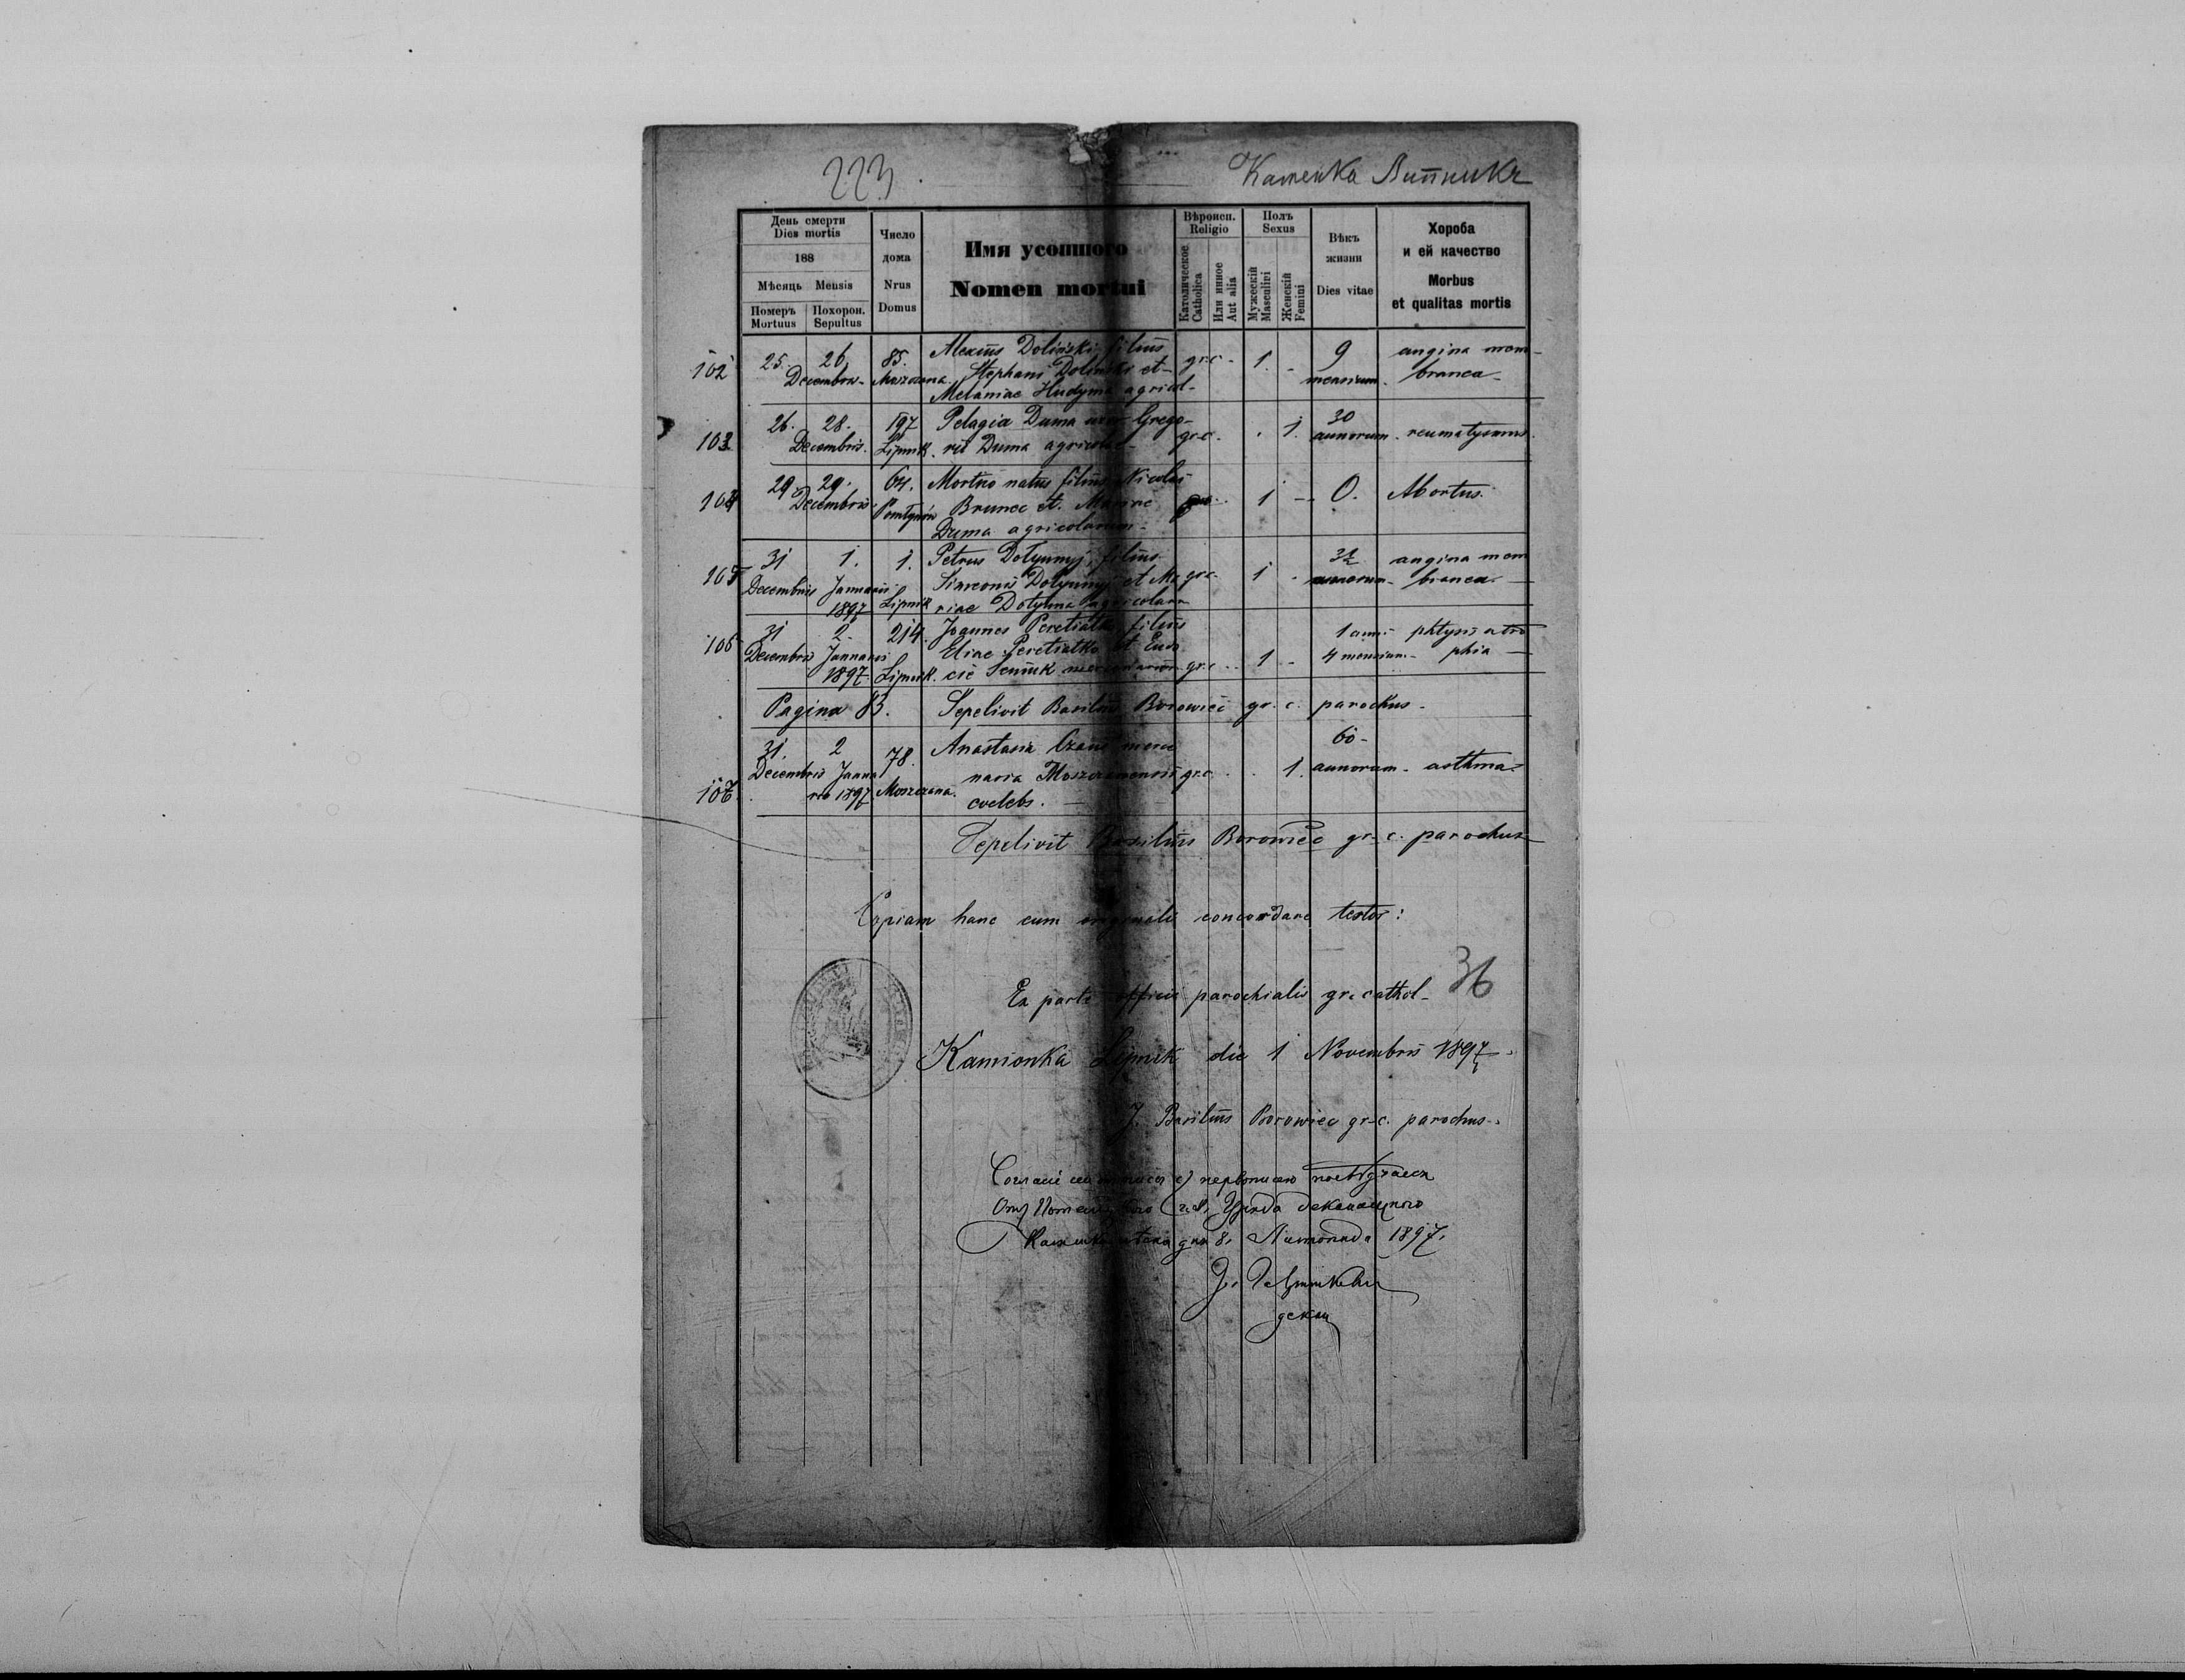 223.
Каменка Липника
День смерти
Dies mortis
188
Мѣсяць Mensis
Померъ Похорон.
Mortuus Sepultus
Число
дома
Nrus
Domus
Имя усопшого
Nomen mortui
Вѣроисп.
Religio
Католическое
Catholica
Или инное
Aut alia
Полъ
Sexus
Мужескій
Masculini
Женскій
Femini
Вѣкъ
жизни
Dies vitae
Хороба
и ей качество
Morbus
et qualitas mortis
102 25. 26. 85. Alexius Doliński filius gr.c. 1. - 9 angina mem-
Decembris Moszczana. Stephani Doliński et mensium. branea
Melaniae Hudyma agricol-
103 26. 28. 197 Pelagia Duma uxor Grego- gr.c. . 1. 30
Decembris. Lipnik. rii Duma agricolae annorum. reumatysmus.
104 29. 29. 64. Mortuo natus filius Nicolai 1 - 0. Abortus.
Decembris Brunec et.
Duma agricolarum.
105 31 1. 1. Petrus filius 32 angina mem
Decembris Januarii Simeonis et Ma gr.c. 1 - annorum branea
1897 Lipnik riae agricolarum
106 31 2. 214. Joannes Peretiatko filius 1 anni phtysis atro
Decembris Januarii Eliae Peretiatko et Eudo 4 mensium. phia
1897 Lipnik. cie gr.c. 1 -
Pagina 83. Sepelivit Basilius Borowiec gr. c. parochus.
31. 2 78. Anastasia merce 60-
Decembris Janua naria Moszczanensis gr.c. . . 1. annorum. asthma
107. rio 1897 Moszczana. coelebs.
Sepelivit Basilius Borowiec gr. c. parochus
Copiam hanc cum originali concordare testor:
36
Ex parte officii parochialis gr. cathol.
Kamionka Lipnik die 1 Novembris 1897.
J. Basilius Borowiec gr. c. parochus.
первописею
Уряда деканального
дня 8. Листопада 1897.
декан